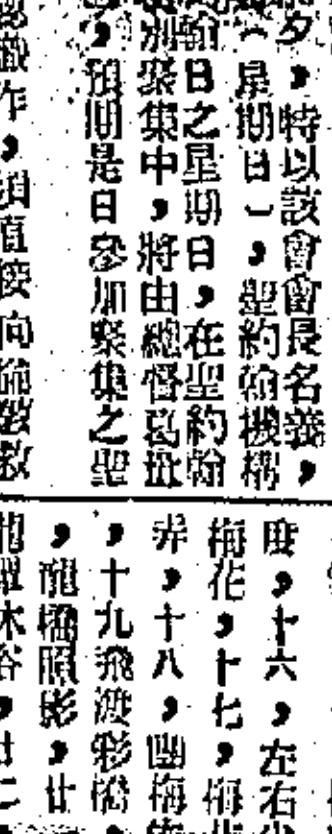 夕，特以該會會長名義，
（星期日），聖約翰機構
翰日之星期日，在聖約翰
別聚集中，將由總督葛量
，預期是日參加聚集之聖
作，直接向
度，十六，左右
梅花，十七，梅
弄，十八，團梅
，十九飛渡彩橋
，龍橋照影，廿
木谷，廿二